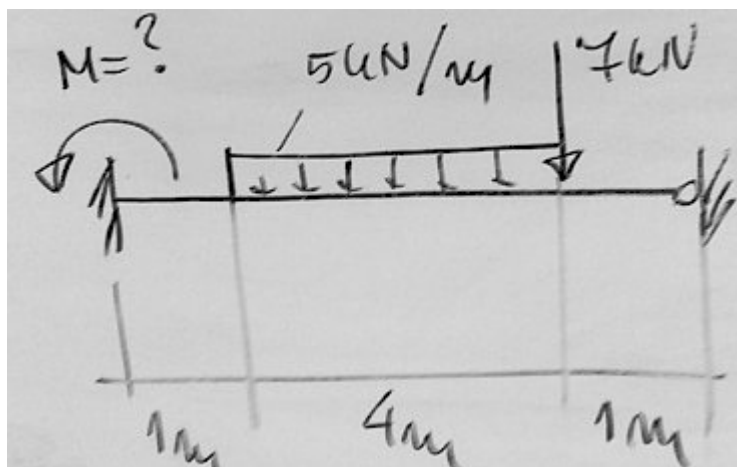 M=?
5kN/m
7kN
1m
4m
1m